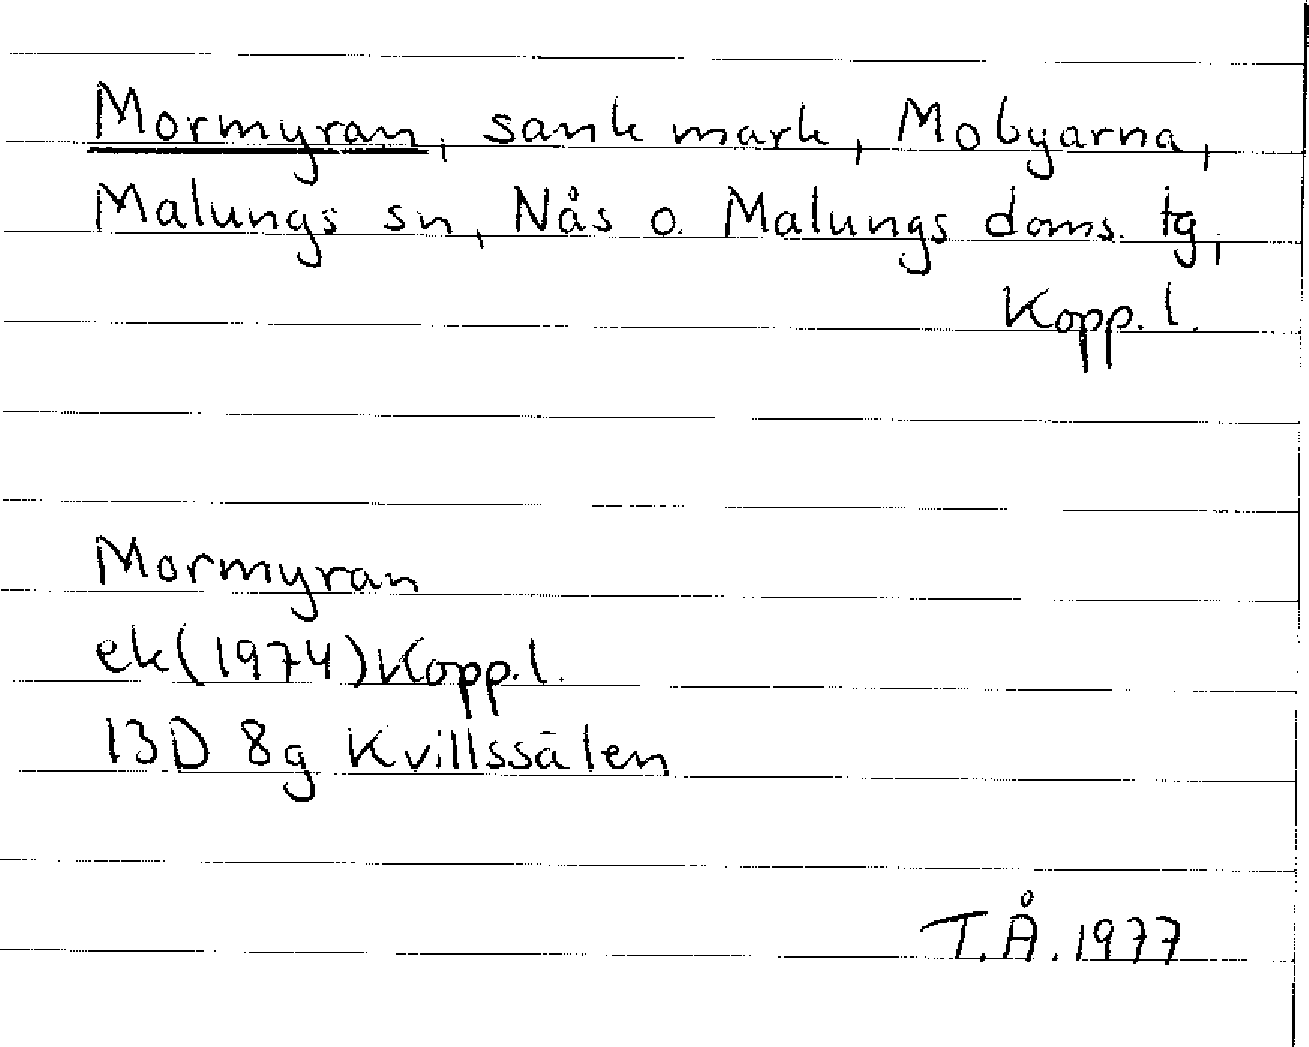 Mormyran, sank mark, Mobyarna,
Malungs sn, Nås o. Malungs doms. tg,
Kopp. l.
Mormyran
ek(1974)Kopp.l.
13D 8g Kvillssälen
T.Å.1977